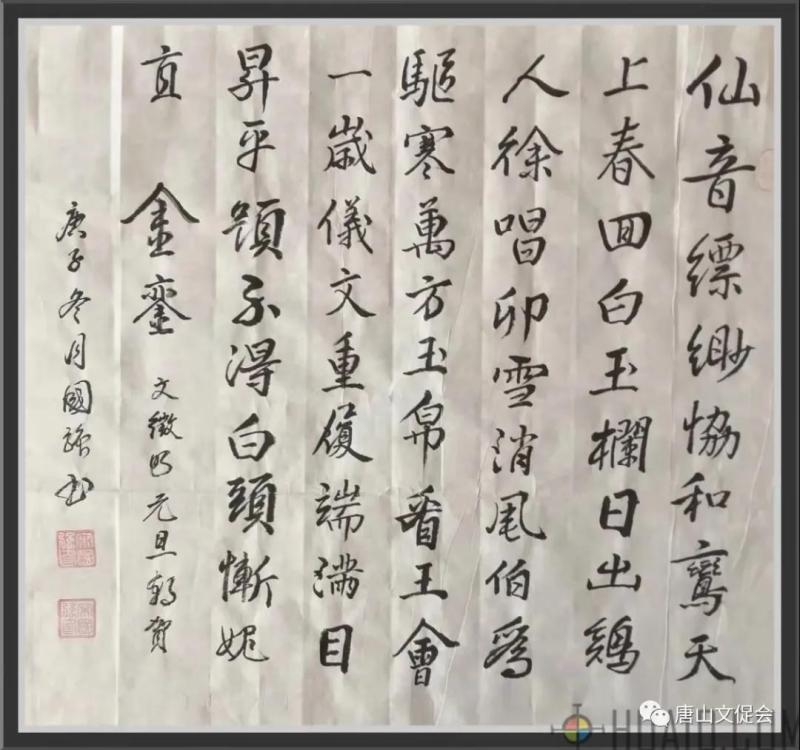 仙音縹緲恊和鸞天
上春囬白玉欄日出鷄
人徐唱卯雪消風伯爲
驅寒萬方玉帛看王會
一歲儀文重履端滿目
昇平題不得白頭慚媿
直金鑾
文徵明元旦朝賀
庚子冬月國书
唐山文促会